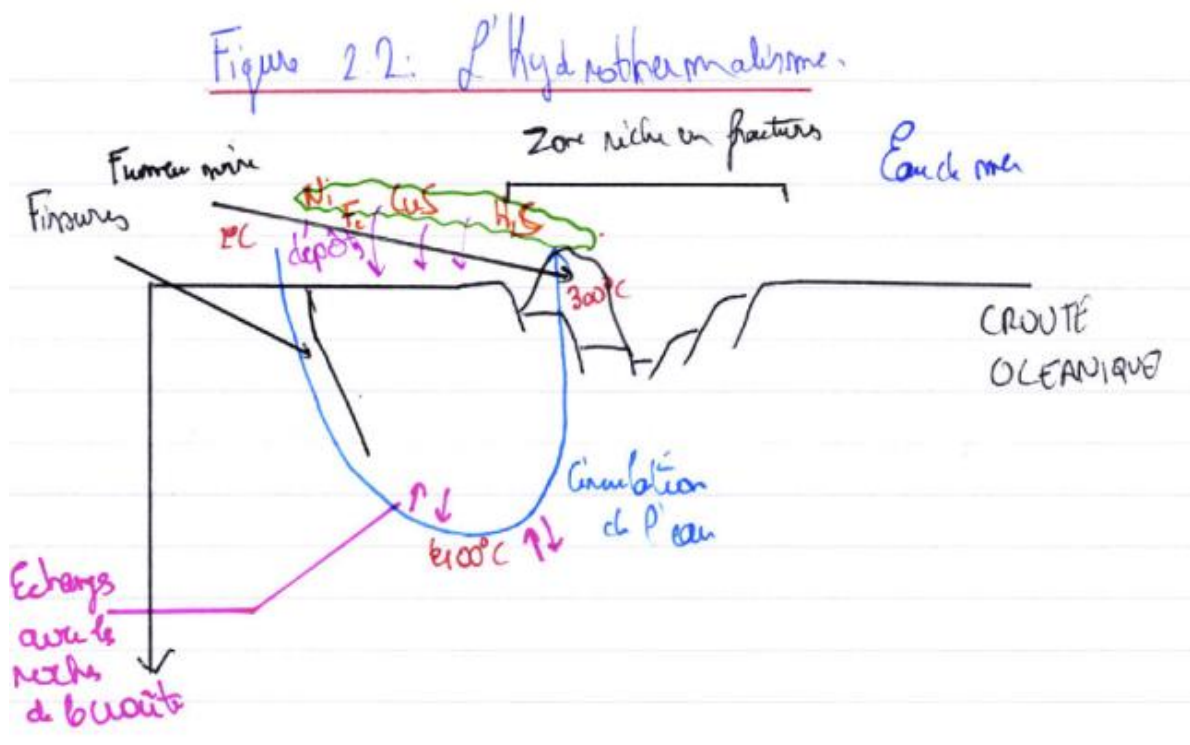 Figure 2.2: L'Hydrothermalisme.
Zone riche en fractures
Eau de mer
Fumeur noir
Fissures
Ni
Fe
CuS
H₂S
2°C
dépôts
300°C
CROUTE
OCEANIQUE
Circulation
de l'eau
400°C
Echanges
avec les
roches
de la croûte